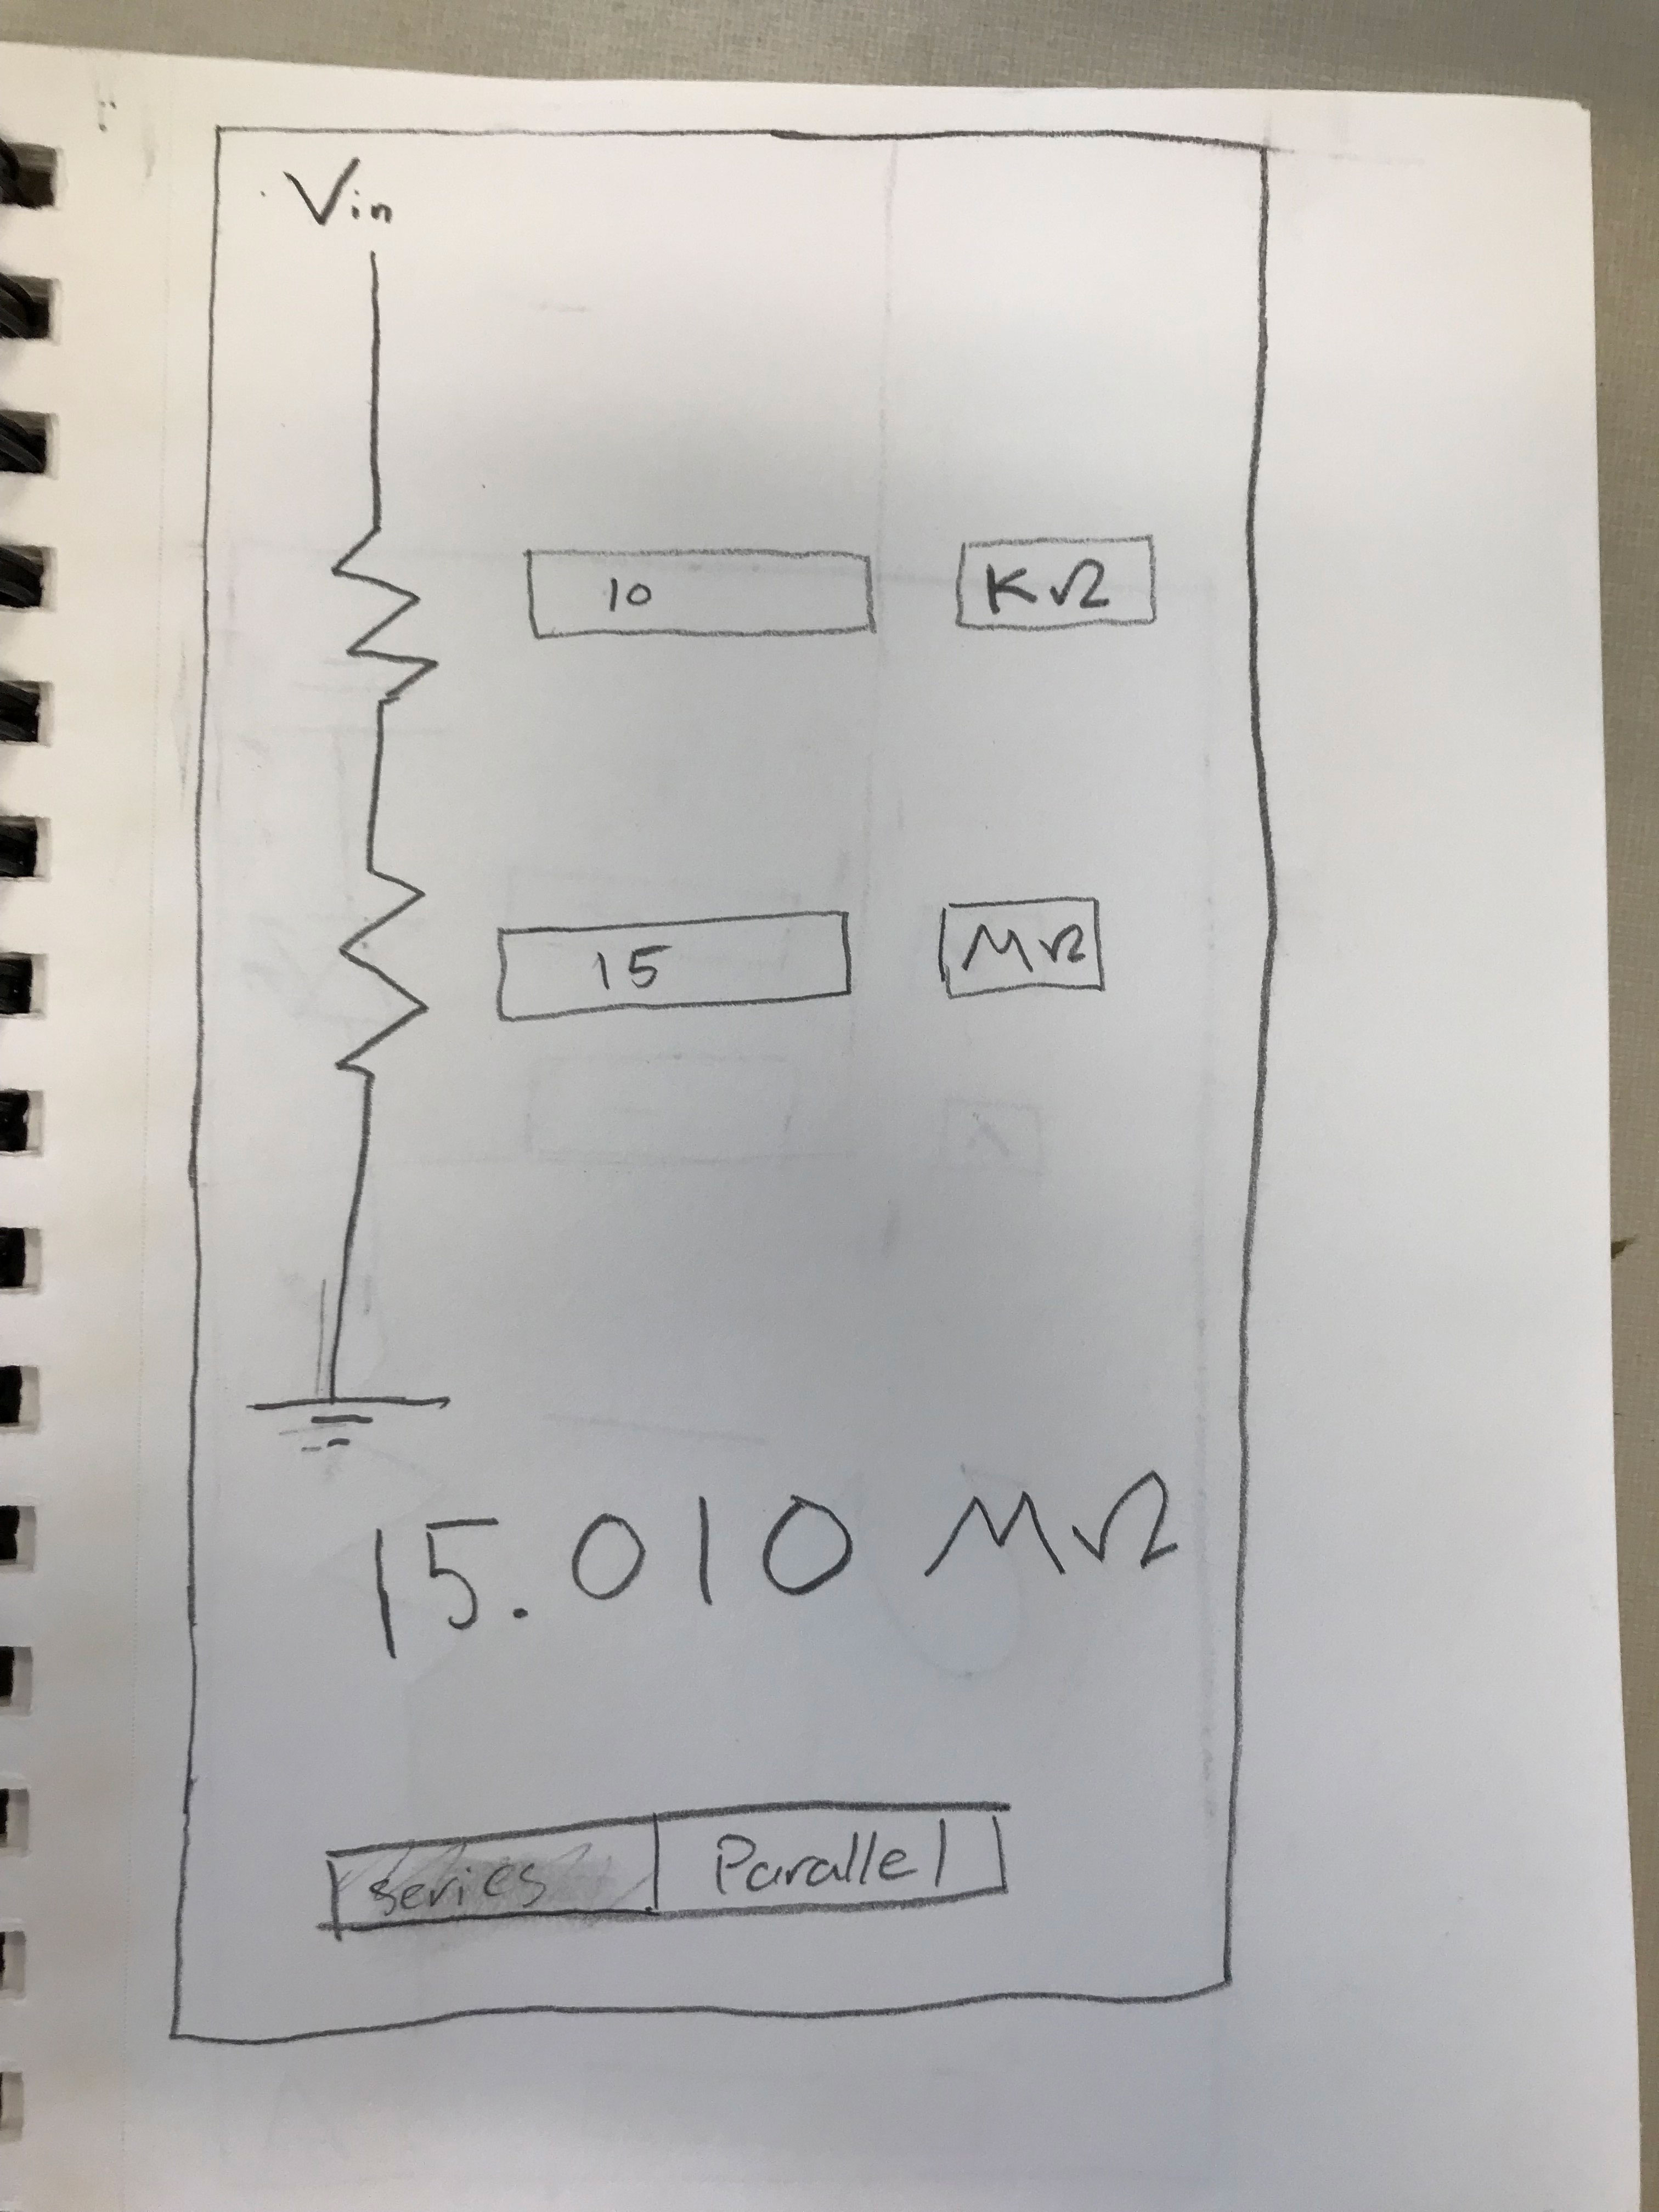 Vin
10 KΩ
15 MΩ
15.010 MΩ
series Parallel